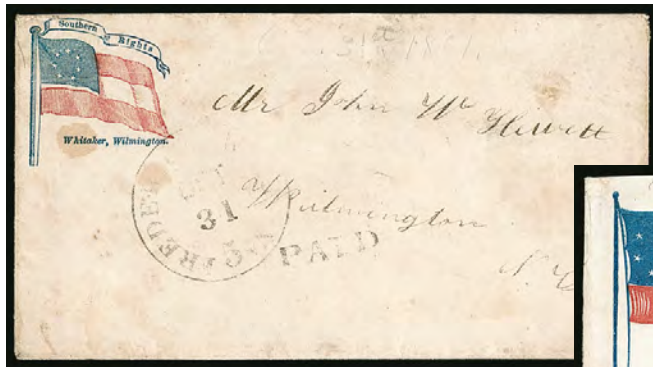 Southern Rights
Whitaker, Wilmington.
1861.
Mr John W Hewett
Wilmington
N. C
31
PAID